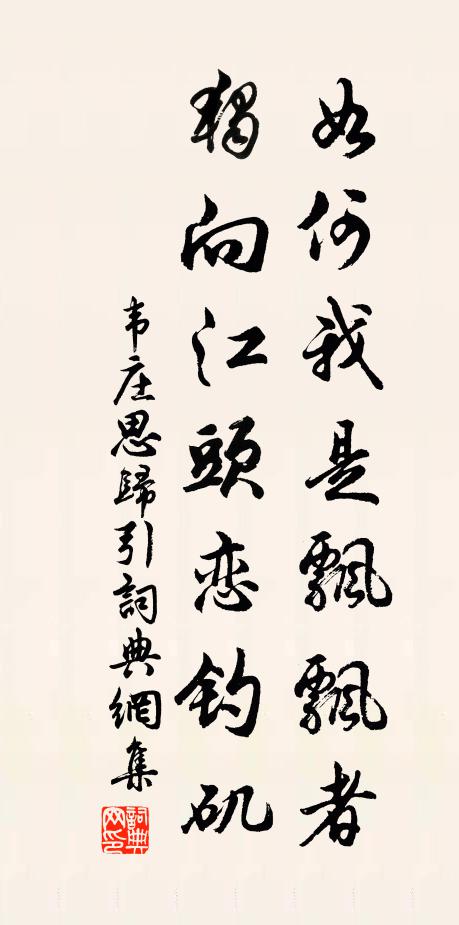 如何我是飄飄者
獨向江頭恋钓矶
韦庄思歸引詞典網集
詞典